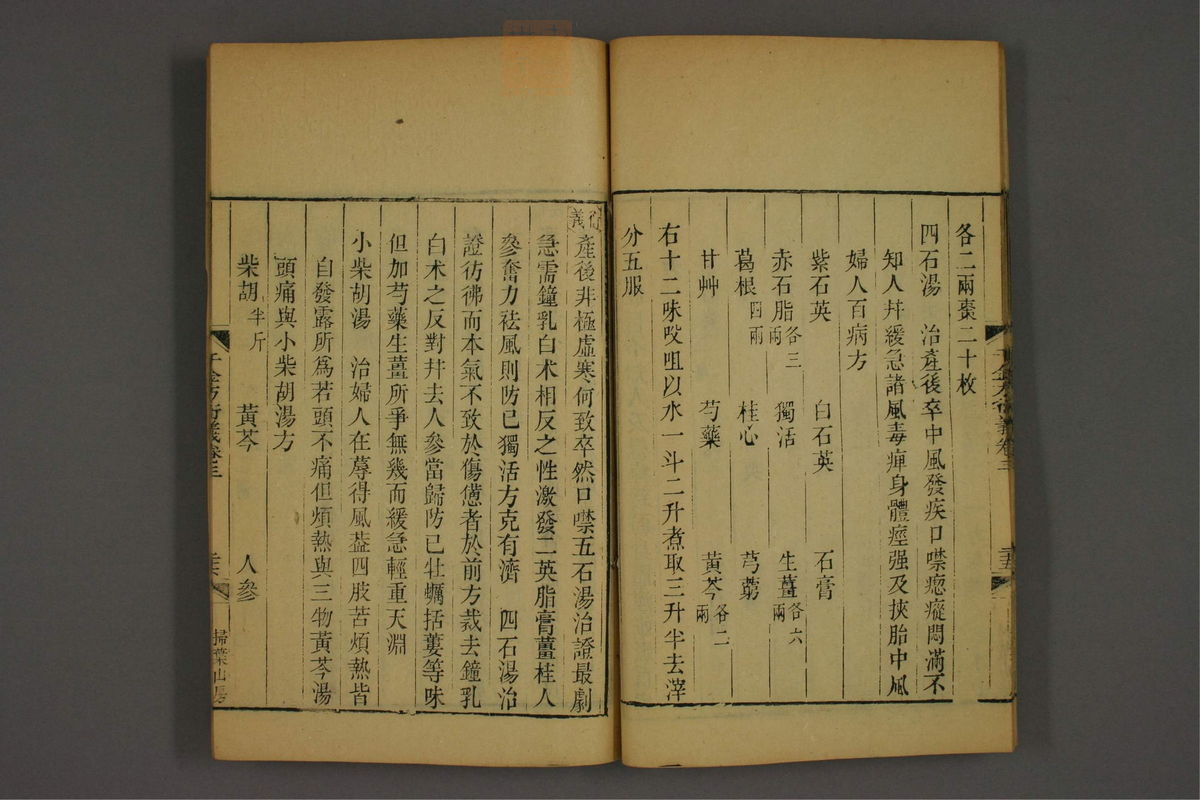 各二兩棗二十枚
四石湯　治產後卒中風發疾口噤瘛瘲悶滿不
知人幷緩急諸風毒痺身體痙强及挾胎中風
婦人百病方
紫石英　白石英　石膏
赤石脂各三兩　獨活　生薑各六兩
葛根四兩　桂心　芎藭
甘艸　芍藥　黃芩各二兩
右十二味㕮咀以水一斗二升煮取三升半去滓
分五服
千金方衍義卷三
衍義
產後非極虛寒何致卒然口噤五石湯治證最劇
急需鐘乳白术相反之性激發二英脂膏薑桂人
參奮力祛風則防已獨活方克有濟　四石湯治
證彷彿而本氣不致於傷憊者於前方裁去鐘乳
白术之反對幷去人參當歸防已牡蠣括蔞等味
但加芍藥生薑所爭無幾而緩急輕重天淵
小柴胡湯　治婦人在蓐得風葢四肢苦煩熱皆
自發露所爲若頭不痛但煩熱與三物黃芩湯
頭痛與小柴胡湯方
柴胡半斤　黃芩　人參
千金方衍義卷三
掃葉山房